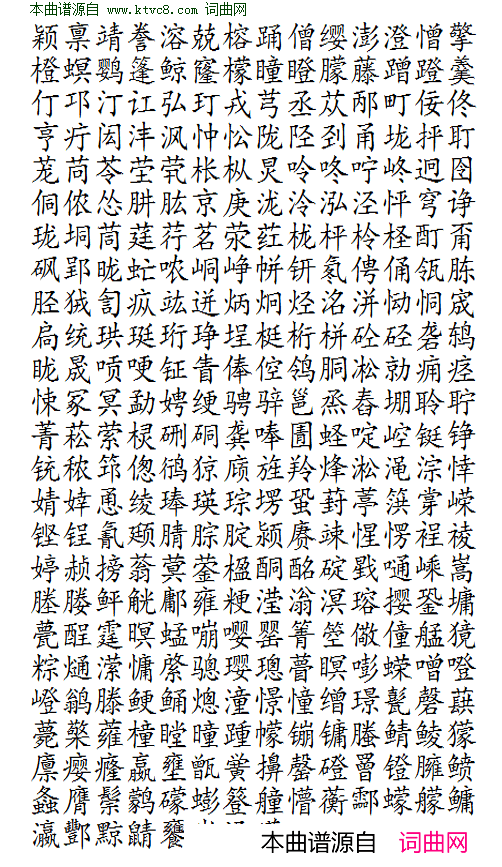 本曲谱源自 www.ktvc8.com 词曲网
颖禀靖誊溶兢榕踊僧缨澎澄憎擎
橙螟鹦篷鲸窿檬瞳瞪朦藤蹭蹬羹
仃邛汀讧弘玎戎芎丞苁邴町佞佟
亨疔闳沣沨忡忪陇陉刭甬垅抨耵
茏苘苓茔茕枨枞炅呤咚咛峂迥囹
侗侬怂肼肱京庚泷泠泓泾怦穹诤
珑垌茼莛荇茗荥荭栊枰柃柽酊甭
砜郢昽虻哝峒峥帡钘氡俜俑瓴胨
胫狨訇疭竑迸炳炯烃洺洴恸恫宬
扃统珙珽珩琤埕梃桁栟硁硿砻鸫
眬晟唝哽钲眚俸倥鸰胴凇勍痈痉
悚冢冥勐娉绠骋骍邕烝舂堋聆聍
菁菘萦棂硎硐龚唪圊蛏啶崆铤铮
铳秾筇偬鸻猄庼旌羚烽淞渑淙悻
婧婞恿绫琫瑛琮塄蛩葑葶箐掌嵘
铿锃氰颋腈腙腚颍赓竦惺愣裎祾
婷赪搒蓊蓂蓥楹酮酩碇戥嗵嵊嵩
塍媵鲆觥鄘雍粳滢滃溟瑢撄銎墉
甍酲霆暝蜢嘣嘤罂箐箜儆僮艋獍
粽熥潆慵綮骢璎璁瞢瞑嘭蝾噌噔
嶝鹟滕鲠鲬熜潼憬憧缯璟氋磬蕻
薨檠蕹橦瞠曈踵幪镚镛螣鲭鲮獴
廪瘿癃嬴壅甑黉擤罄磴罾镫臃鲼
螽膺鬃鹲礞蟛簦艟懵蘅酃蠓艨鳙
瀛酆黥鼱饔
本曲谱源自 词曲网